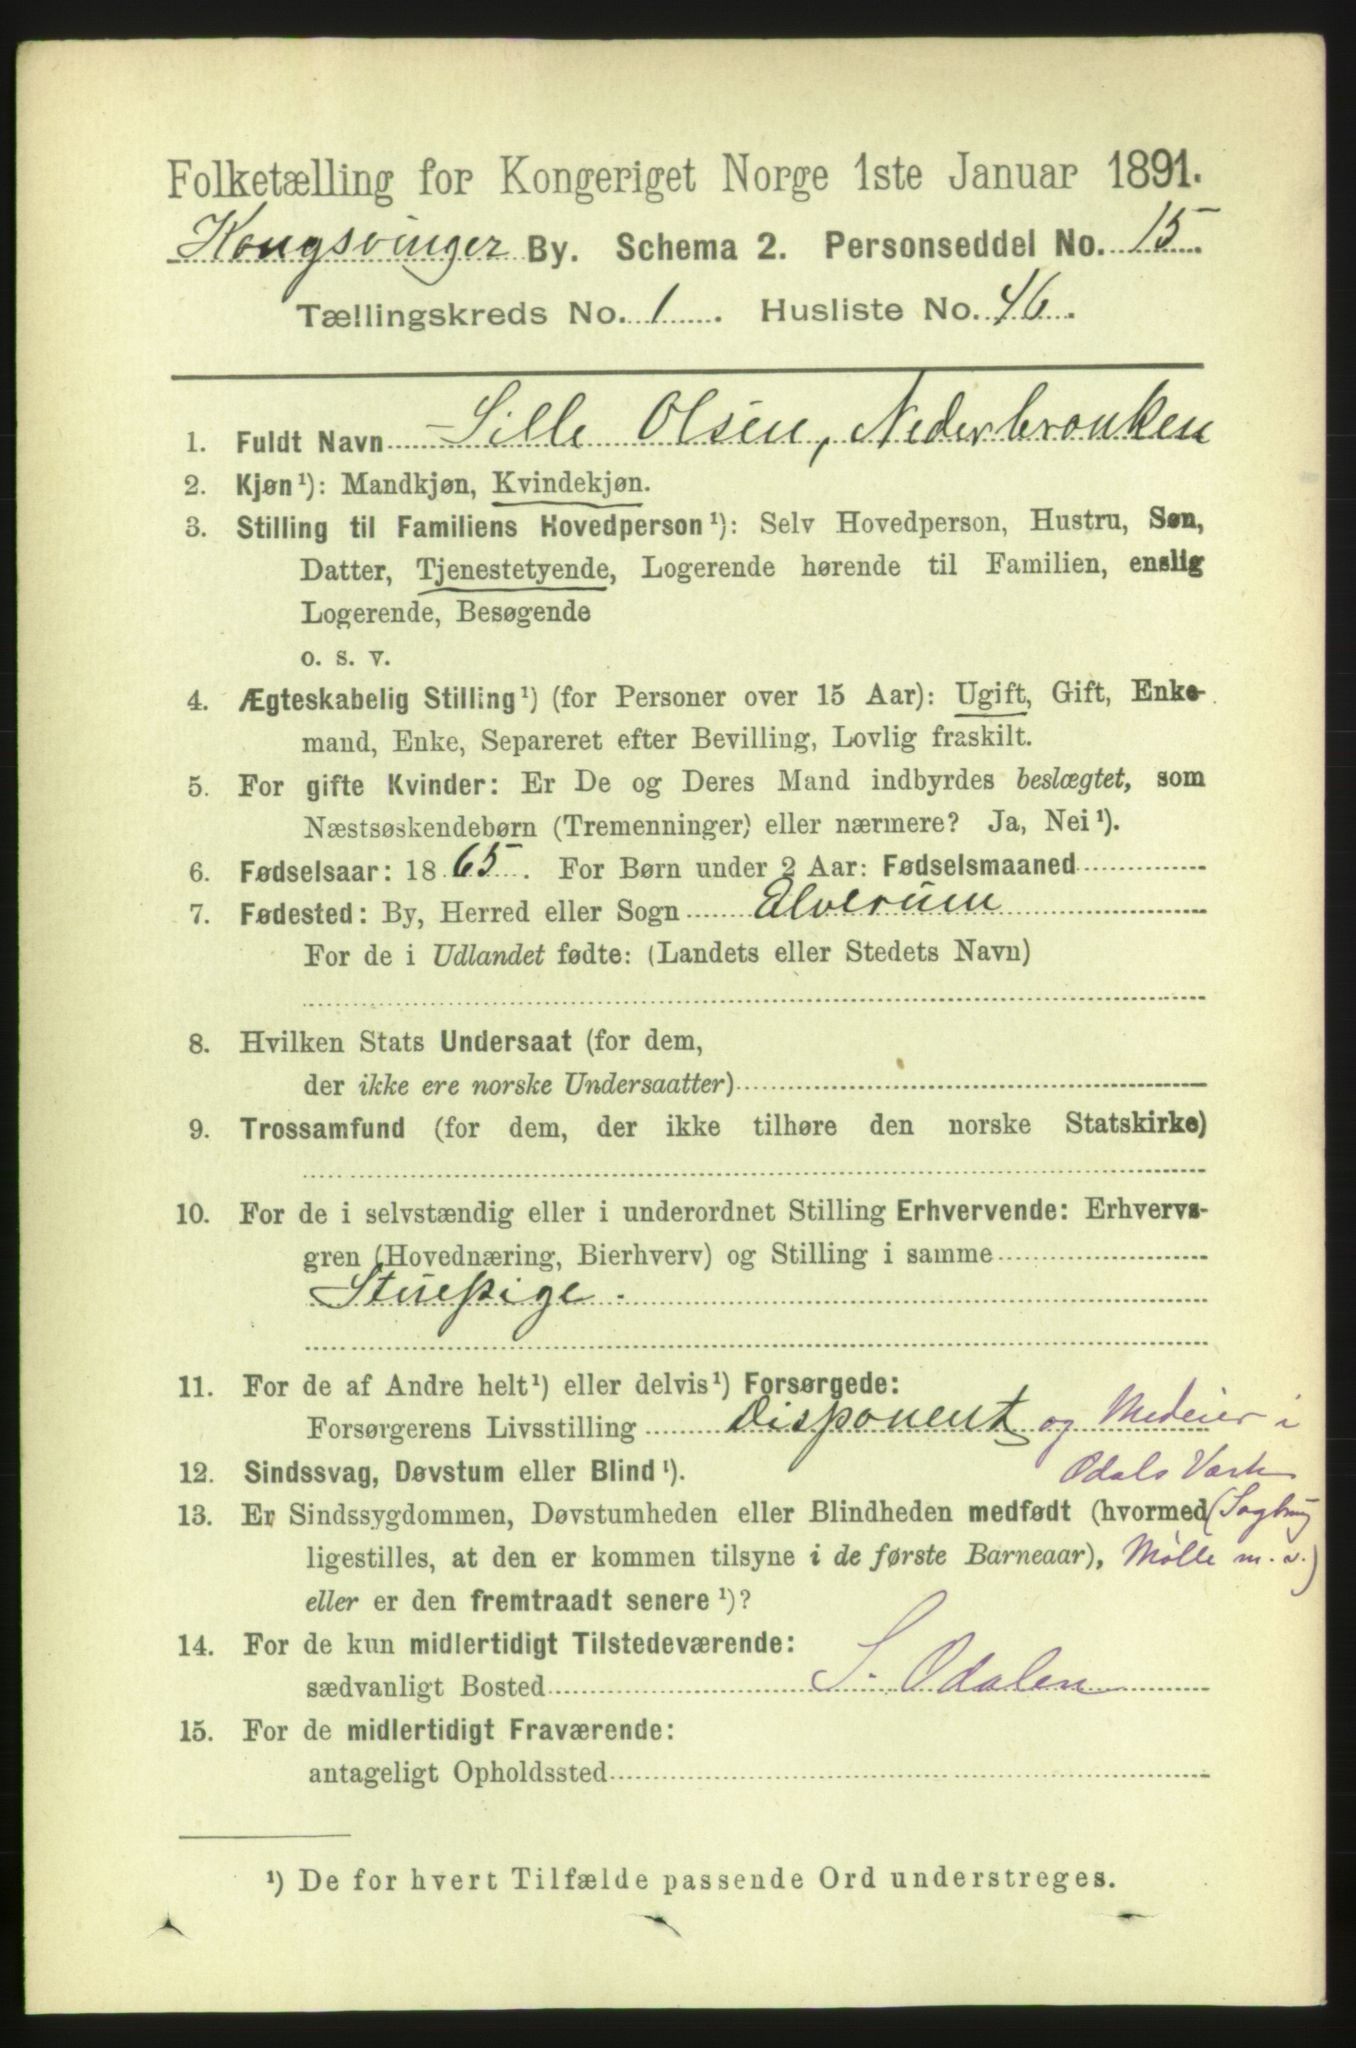 Folketælling for Kongeriget Norge 1ste Januar 1891.
Kongsvinger By. Schema 2. Personseddel No. 15.
Tællingskreds No. 1. Husliste No. 46.
1. Fuldt Navn Sille Olsen, Nederbronken
2. Kjøn¹): Mandkjøn, Kvindekjøn.
3. Stilling til Familiens Hovedperson¹): Selv Hovedperson, Hustru, Søn,
Datter, Tjenestetyende, Logerende hørende til Familien, enslig
Logerende, Besøgende
o. s. v.
4. Ægteskabelig Stilling¹) (for Personer over 15 Aar): Ugift, Gift, Enke-
mand, Enke, Separeret efter Bevilling, Lovlig fraskilt.
5. For gifte Kvinder: Er De og Deres Mand indbyrdes beslægtet, som
Næstsøskendebørn (Tremenninger) eller nærmere? Ja, Nei¹).
6. Fødselsaar: 1865. For Børn under 2 Aar: Fødselsmaaned
7. Fødested: By, Herred eller Sogn Elverum
For de i Udlandet fødte: (Landets eller Stedets Navn)
8. Hvilken Stats Undersaat (for dem,
der ikke ere norske Undersaatter)
9. Trossamfund (for dem, der ikke tilhøre den norske Statskirke)
10. For de i selvstændig eller i underordnet Stilling Erhvervende: Erhvervs-
gren (Hovednæring, Bierhverv) og Stilling i samme
Stuepige.
11. For de af Andre helt¹) eller delvis¹) Forsørgede:
Forsørgerens Livsstilling Disponent og Medeier i
12. Sindssvag, Døvstum eller Blind¹). Odals Værk
13. Er Sindssygdommen, Døvstumheden eller Blindheden medfødt (hvormed (Sagbrug
ligestilles, at den er kommen tilsyne i de første Barneaar), Mølle m. v.)
eller er den fremtraadt senere¹)?
14. For de kun midlertidigt Tilstedeværende:
sædvanligt Bosted S. Odalen
15. For de midlertidigt Fraværende:
antageligt Opholdssted
¹) De for hvert Tilfælde passende Ord understreges.